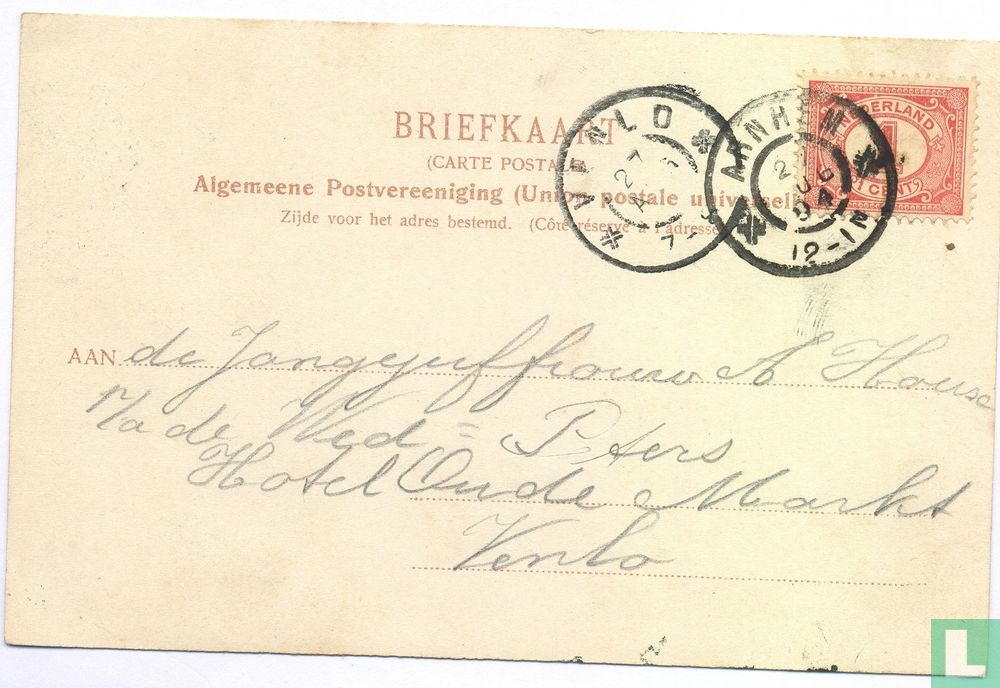 BRIEFKAART
(CARTE POSTALE)
Algemeene Postvereeniging (Union postale universelle)
Zijde voor het adres bestemd. (Côté réservé à l'adresse
VENLO
27
7-
ARNHEM
04
12-1N
NEDERLAND
1
1 CENT
AAN de Jongejuffrouw A House
p/a de Wed= Peters
Hotel Oude Markt
Venlo
L